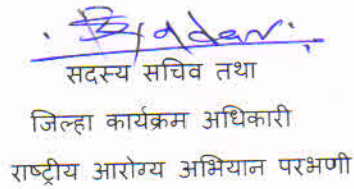 सदस्य सचिव तथा
जिल्हा कार्यक्रम अधिकारी
राष्ट्रीय आरोग्य अभियान परभणी